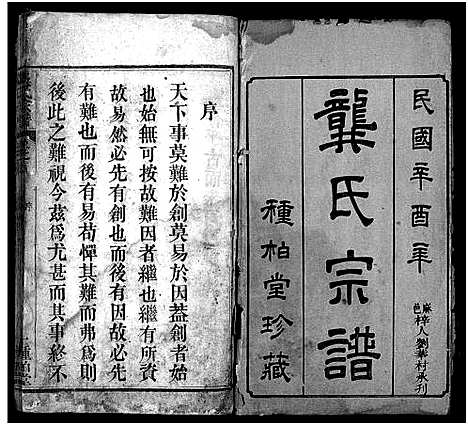 民國辛酉年
麻邑梓人劉華村承刊
龔氏宗譜
種柏堂珍藏
序
天下事莫難於創莫易於因蓋創者始
也始無可按故難因者繼也繼有所資
故易然必先有創也而後有因故亦必先
有難也而後有易苟憚其難而弗爲則
後此之難視今茲爲尤甚而其事終不